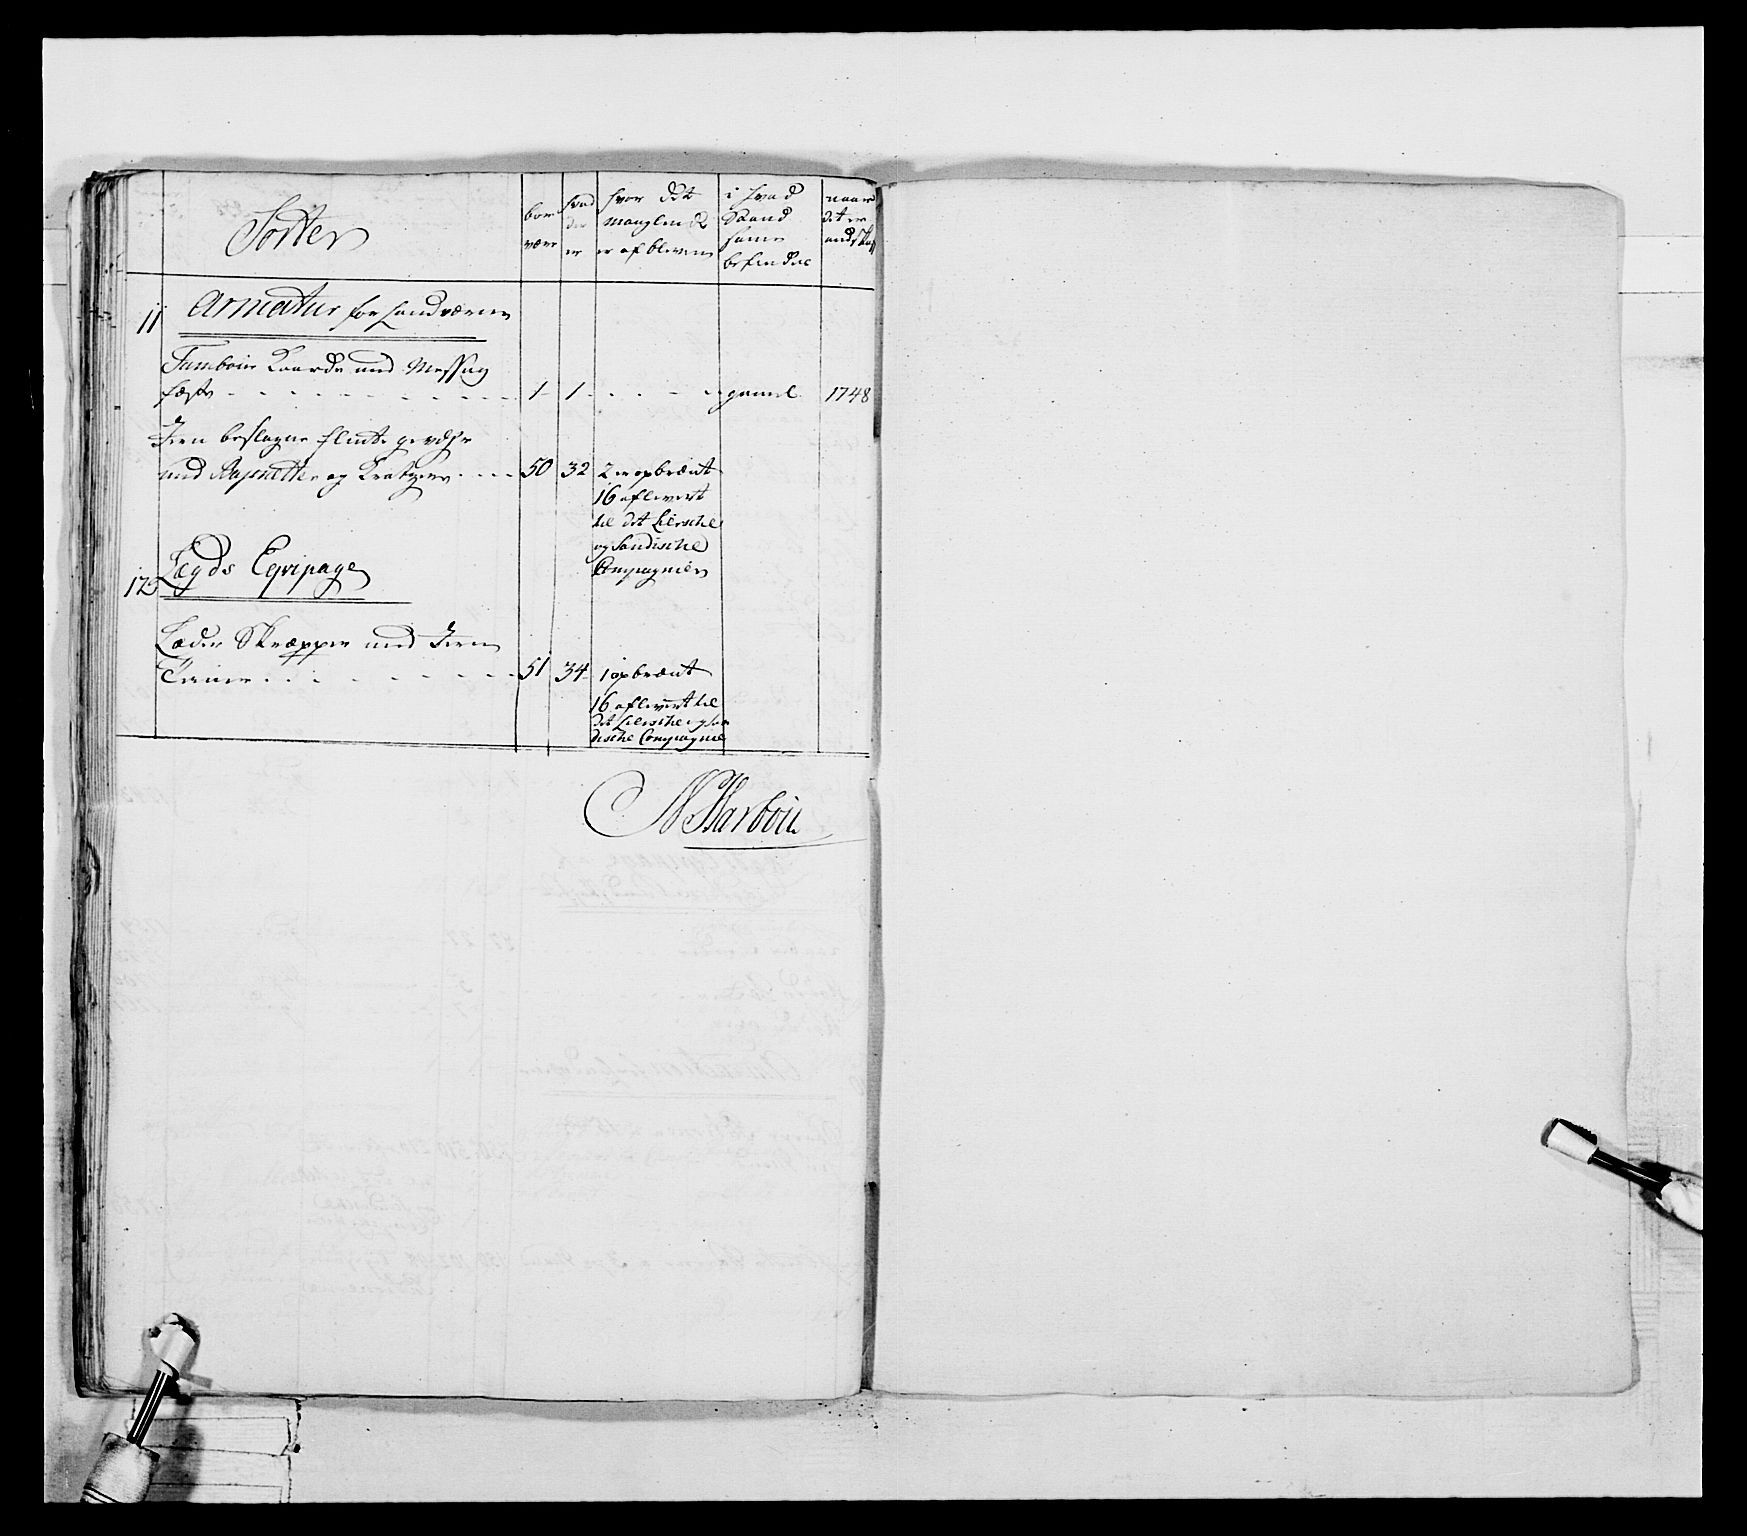 Sorter
bør
være
hvad
der
er
hvor det
manglende
er afbleven
i hvad
Stand
samme
befindes
naar
det er
andskaf
11 Armatur for Landværne
Tambour Kaarde med Messing
fæste 1 1 gamel 1748
Jern beslagne flinte geværer
med Bajonetter og Kratzere 50 32 2 er opbrænt
16 aflevert
til det Liersche
og Sandische
Compagnier
12 Lægds Eqvipage
Læder Skræpper med Jern
51 34 1 opbrænt
16 aflevert til
det Liersche og San
dische Compagnie
N Harbou